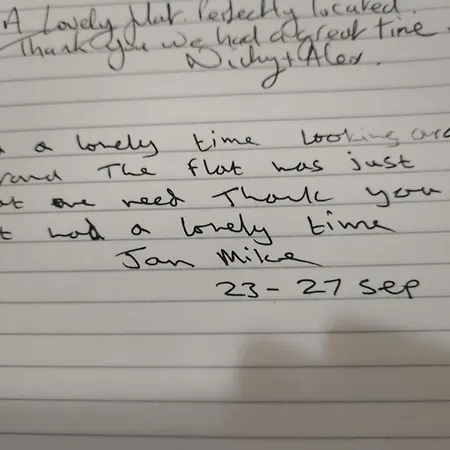 A Lovely flat. Perfectly located.
Thank you we had a great time.
Nicky + Alex.
a lovely time looking
The flat was just
we need Thank you
had a lovely time
Jan Mike
23 - 27 Sep